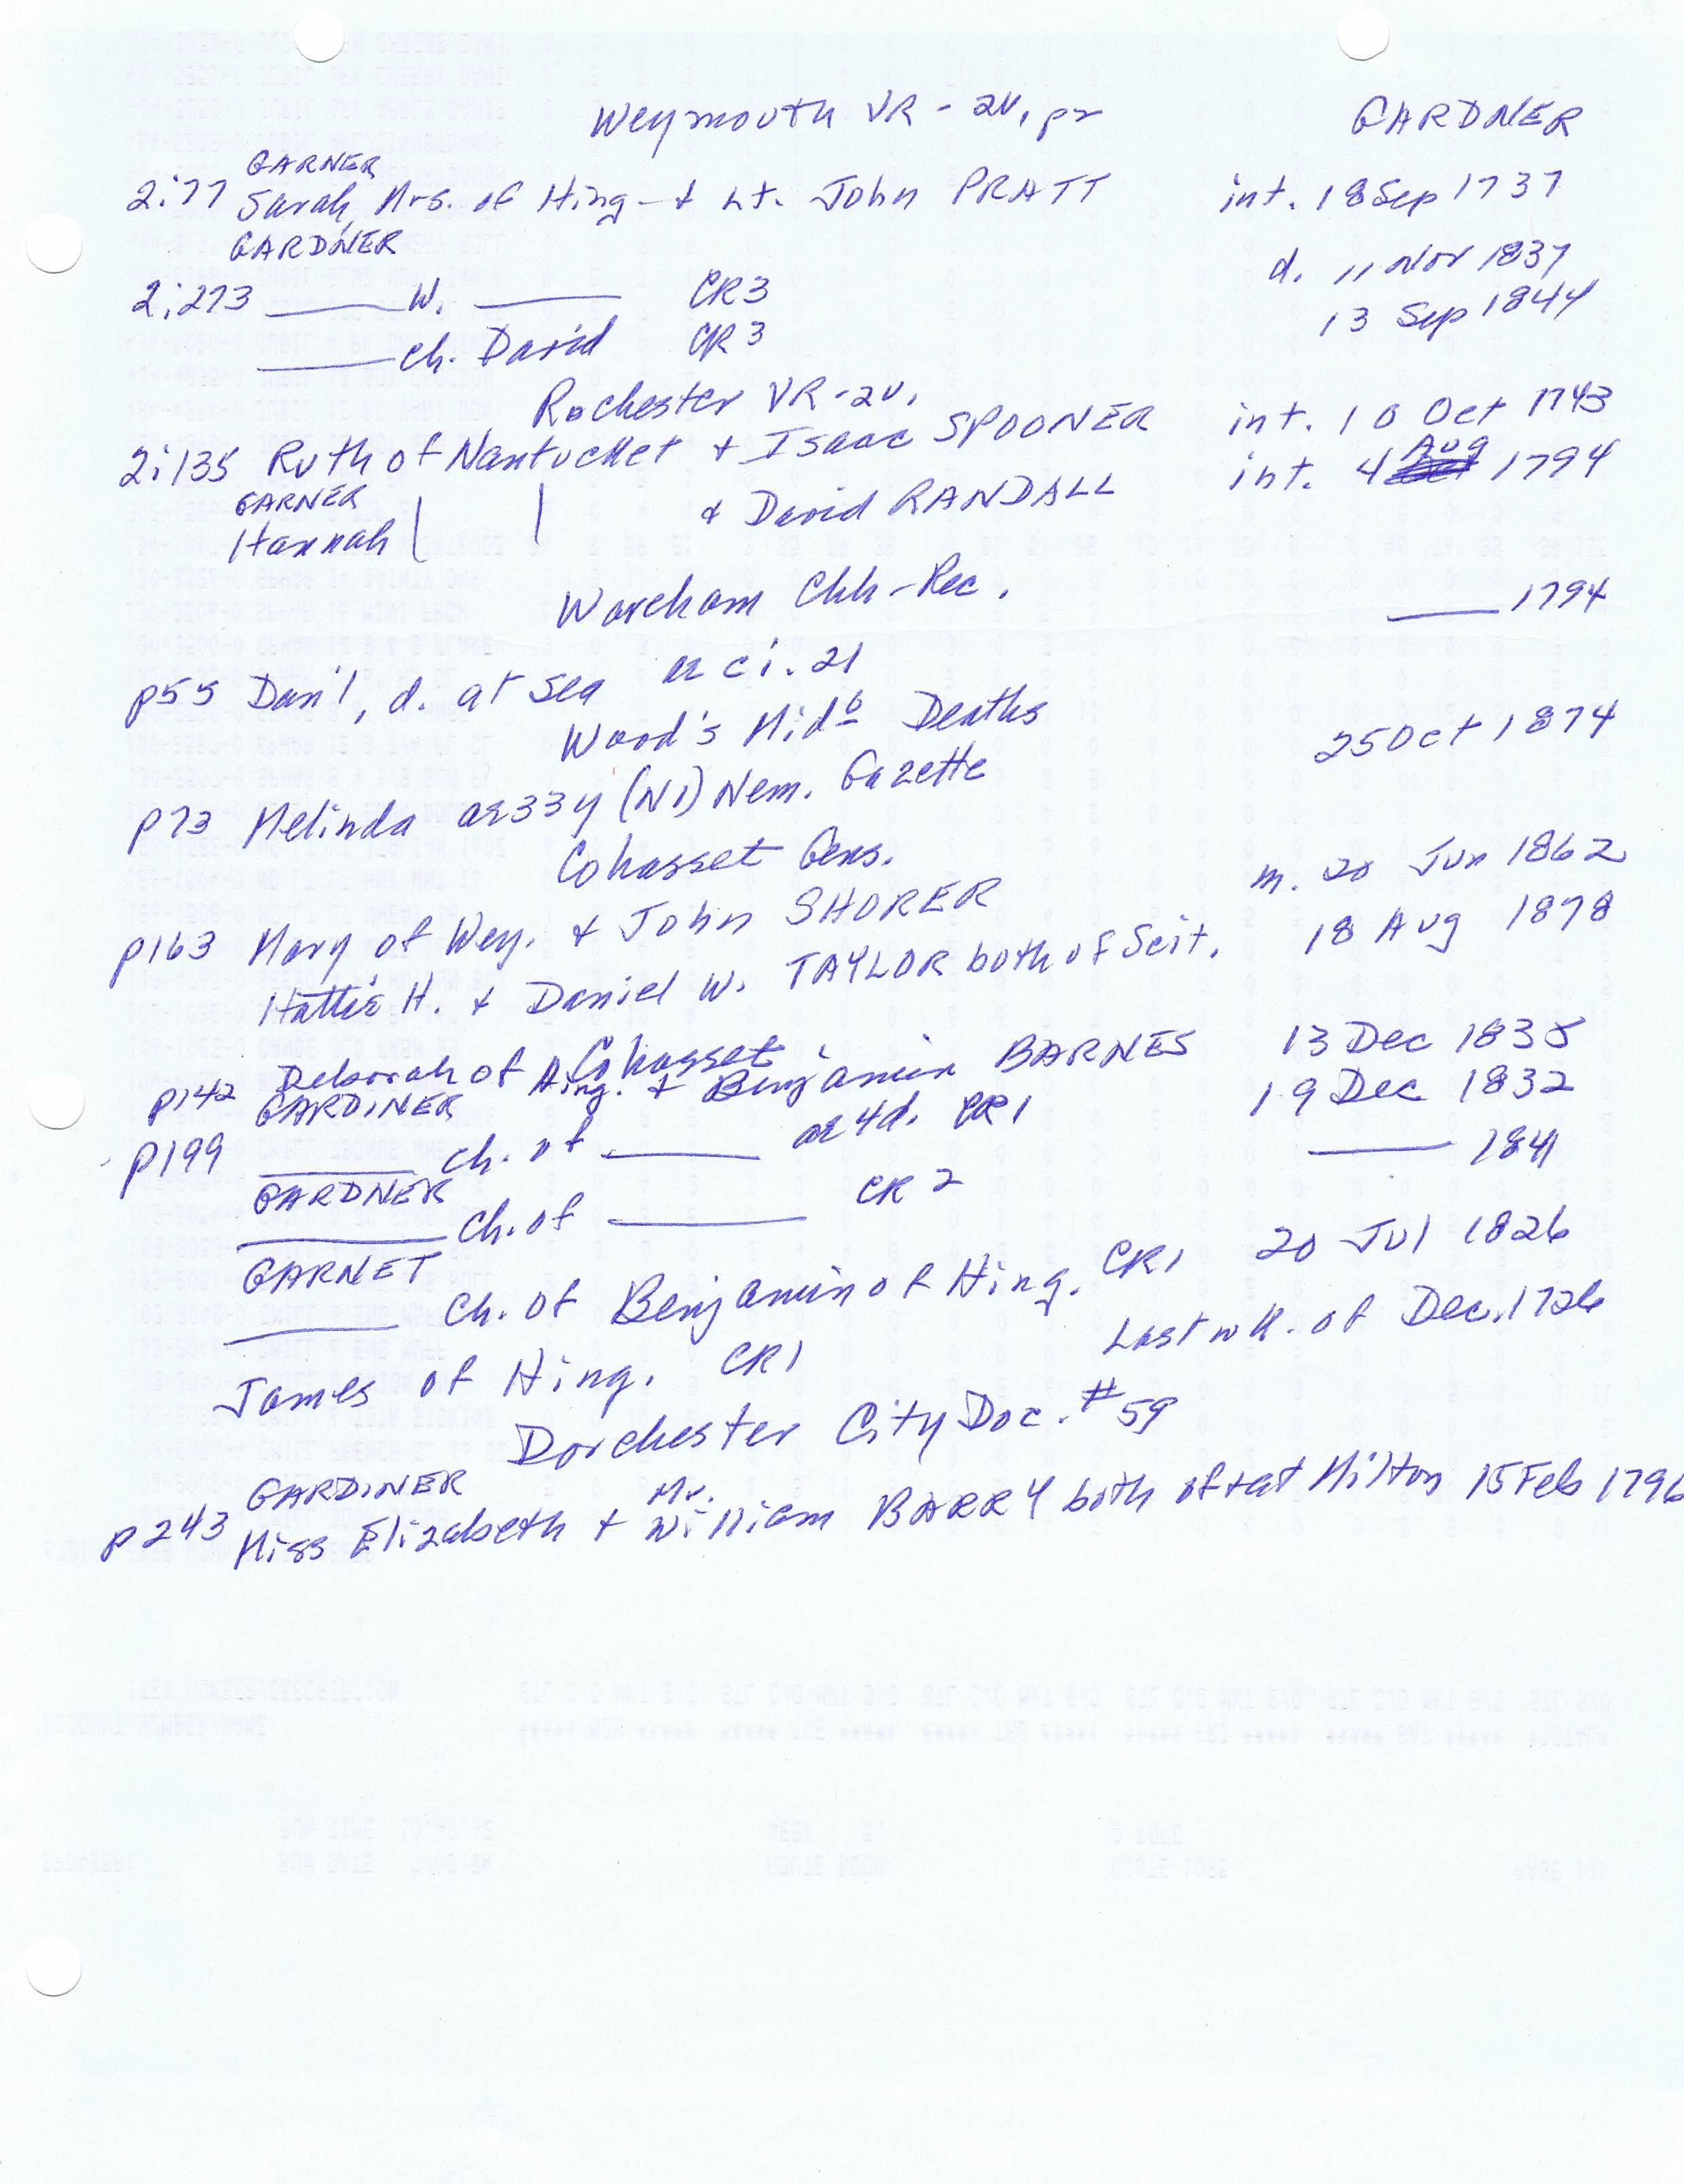 Weymouth VR - 2v, pr GARDNER
GARNER
2:77 Sarah, Mrs. of Hing - + Lt. John PRATT int. 18 Sep 1737
GARDNER
2:273 ____ W. ____ CR3 d. 11 Nov 1837
____ ch. David CR3 13 Sep 1844
Rochester VR - 2v.
2:135 Ruth of Nantucket + Isaac SPOONER int. 10 Oct 1743
GARNER
Hannah | | + David RANDALL int. 4 Aug 1794
Wareham Chh - Rec.
p55 Dan'l, d. at Sea ae ci. 21 ____ 1794
Wood's Midb Deaths
p73 Melinda ae 33y (N1) Nem. Gazette 25 Oct 1874
Cohasset Gens.
p163 Mary of Wey. + John SHORER m. 20 Jun 1862
Hattie H. + Daniel W. TAYLOR both of Scit. 18 Aug 1878
Cohasset
p142 Deborah of Hing. + Benjamin BARNES 13 Dec 1835
GARDINER
p199 ____ ch. of ____ ae 4d. CR1 19 Dec 1832
GARDNER
____ ch. of ____ CR2 ____ 1841
GARNET
____ ch. of Benjamin of Hing. CR1 20 Jul 1826
James of Hing. CR1 Last wk. of Dec. 1726
Dorchester City Doc. #59
GARDINER Mr.
p243 Miss Elizabeth + William BARRY both of + at Milton 15 Feb 1796